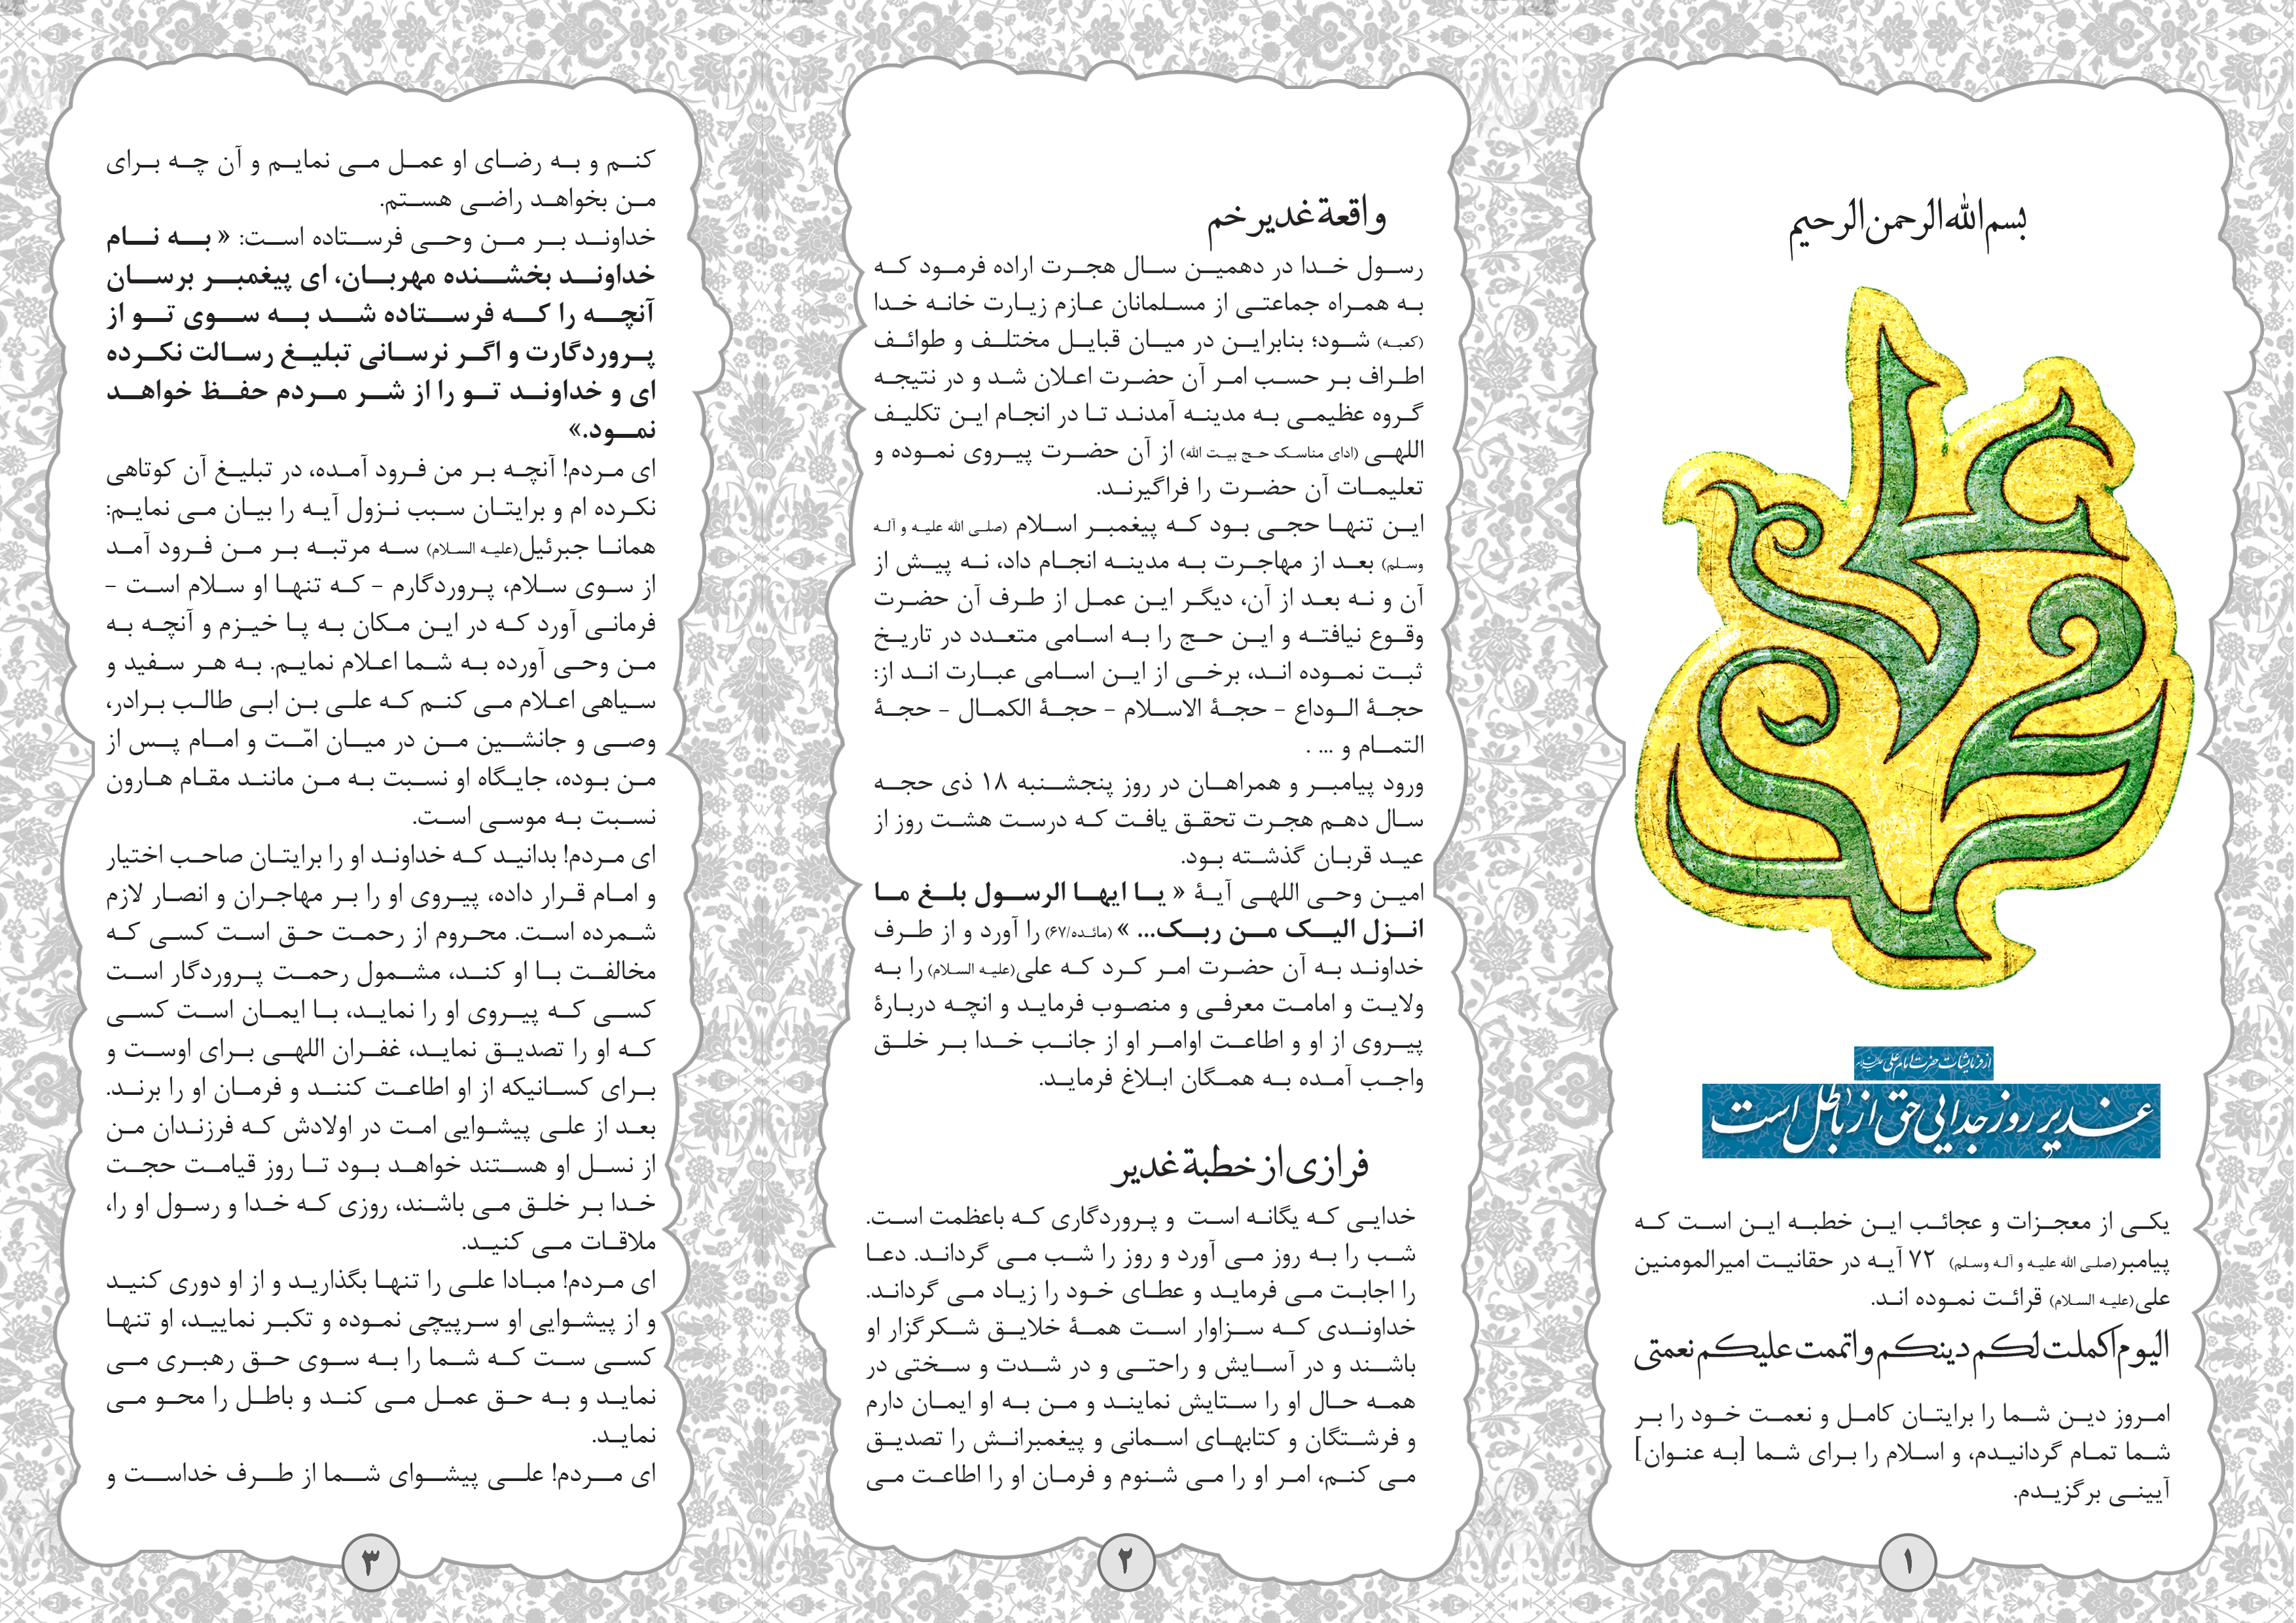 بسم الله الرحمن الرحیم
علی ولی الله
از فرمایشات حضرت امام علی علیه السلام
غدیر روز جدایی حق از باطل است
یکی از معجزات و عجائب این خطبه این است که
پیامبر(صلی الله علیه و آله وسلم) ۷۲ آیه در حقانیت امیرالمومنین
علی(علیه السلام) قرائت نموده اند.
الیوم اکملت لکم دینکم و اتممت علیکم نعمتی
امروز دین شما را برایتان کامل و نعمت خود را بر
شما تمام گردانیدم، و اسلام را برای شما [به عنوان]
آیینی برگزیدم.
۱
واقعة غدیر خم
رسول خدا در دهمین سال هجرت اراده فرمود که
به همراه جماعتی از مسلمانان عازم زیارت خانه خدا
(کعبه) شود؛ بنابراین در میان قبایل مختلف و طوائف
اطراف بر حسب امر آن حضرت اعلان شد و در نتیجه
گروه عظیمی به مدینه آمدند تا در انجام این تکلیف
اللهی (ادای مناسک حج بیت الله) از آن حضرت پیروی نموده و
تعلیمات آن حضرت را فراگیرند.
این تنها حجی بود که پیغمبر اسلام (صلی الله علیه و آله
وسلم) بعد از مهاجرت به مدینه انجام داد، نه پیش از
آن و نه بعد از آن، دیگر این عمل از طرف آن حضرت
وقوع نیافته و این حج را به اسامی متعدد در تاریخ
ثبت نموده اند، برخی از این اسامی عبارت اند از:
حجۀ الوداع - حجۀ الاسلام - حجۀ الکمال - حجۀ
التمام و ... .
ورود پیامبر و همراهان در روز پنجشنبه ۱۸ ذی حجه
سال دهم هجرت تحقق یافت که درست هشت روز از
عید قربان گذشته بود.
امین وحی اللهی آیۀ « یا ایها الرسول بلغ ما
انزل الیک من ربک... » (مائده/۶۷) را آورد و از طرف
خداوند به آن حضرت امر کرد که علی(علیه السلام) را به
ولایت و امامت معرفی و منصوب فرماید و انچه دربارۀ
پیروی از او و اطاعت اوامر او از جانب خدا بر خلق
واجب آمده به همگان ابلاغ فرماید.
فرازی از خطبة غدیر
خدایی که یگانه است و پروردگاری که باعظمت است.
شب را به روز می آورد و روز را شب می گرداند. دعا
را اجابت می فرماید و عطای خود را زیاد می گرداند.
خداوندی که سزاوار است همۀ خلایق شکرگزار او
باشند و در آسایش و راحتی و در شدت و سختی در
همه حال او را ستایش نمایند و من به او ایمان دارم
و فرشتگان و کتابهای اسمانی و پیغمبرانش را تصدیق
می کنم، امر او را می شنوم و فرمان او را اطاعت می
۲
کنم و به رضای او عمل می نمایم و آن چه برای
من بخواهد راضی هستم.
خداوند بر من وحی فرستاده است: « به نام
خداوند بخشنده مهربان، ای پیغمبر برسان
آنچه را که فرستاده شد به سوی تو از
پروردگارت و اگر نرسانی تبلیغ رسالت نکرده
ای و خداوند تو را از شر مردم حفظ خواهد
نمود.»
ای مردم! آنچه بر من فرود آمده، در تبلیغ آن کوتاهی
نکرده ام و برایتان سبب نزول آیه را بیان می نمایم:
همانا جبرئیل(علیه السلام) سه مرتبه بر من فرود آمد
از سوی سلام، پروردگارم - که تنها او سلام است -
فرمانی آورد که در این مکان به پا خیزم و آنچه به
من وحی آورده به شما اعلام نمایم. به هر سفید و
سیاهی اعلام می کنم که علی بن ابی طالب برادر،
وصی و جانشین من در میان امّت و امام پس از
من بوده، جایگاه او نسبت به من مانند مقام هارون
نسبت به موسی است.
ای مردم! بدانید که خداوند او را برایتان صاحب اختیار
و امام قرار داده، پیروی او را بر مهاجران و انصار لازم
شمرده است. محروم از رحمت حق است کسی که
مخالفت با او کند، مشمول رحمت پروردگار است
کسی که پیروی او را نماید، با ایمان است کسی
که او را تصدیق نماید، غفران اللهی برای اوست و
برای کسانیکه از او اطاعت کنند و فرمان او را برند.
بعد از علی پیشوایی امت در اولادش که فرزندان من
از نسل او هستند خواهد بود تا روز قیامت حجت
خدا بر خلق می باشند، روزی که خدا و رسول او را،
ملاقات می کنید.
ای مردم! مبادا علی را تنها بگذارید و از او دوری کنید
و از پیشوایی او سرپیچی نموده و تکبر نمایید، او تنها
کسی ست که شما را به سوی حق رهبری می
نماید و به حق عمل می کند و باطل را محو می
نماید.
ای مردم! علی پیشوای شما از طرف خداست و
۳